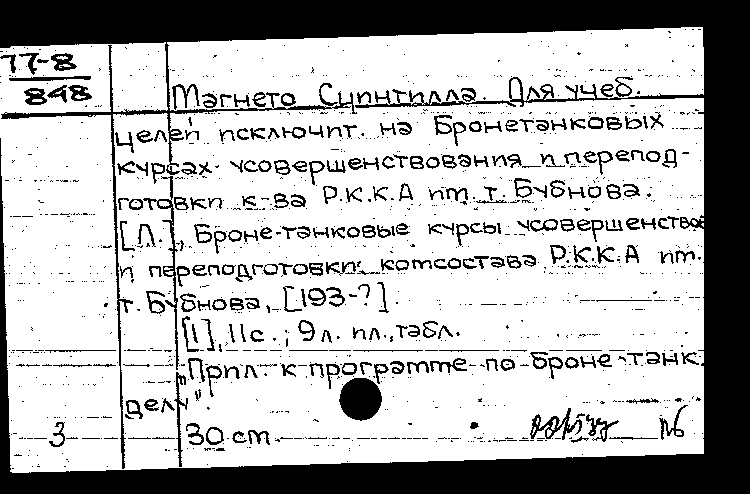 77-8
848
Магнето Сцинтилла. Для учеб.
целей исключит. на Бронетанковых
курсах усовершенствования и перепод-
готовки к-ва Р.К.К.А им. т. Бубнова.
[Л.], Броне-танковые курсы усовершенствов
и переподготовки комсостава Р.К.К.А им.
т. Бубнова, [193-?].
[1], 11с.; 9л. ил., табл.
"Прил. к программе по броне-танк.
делу".
3 30 см.